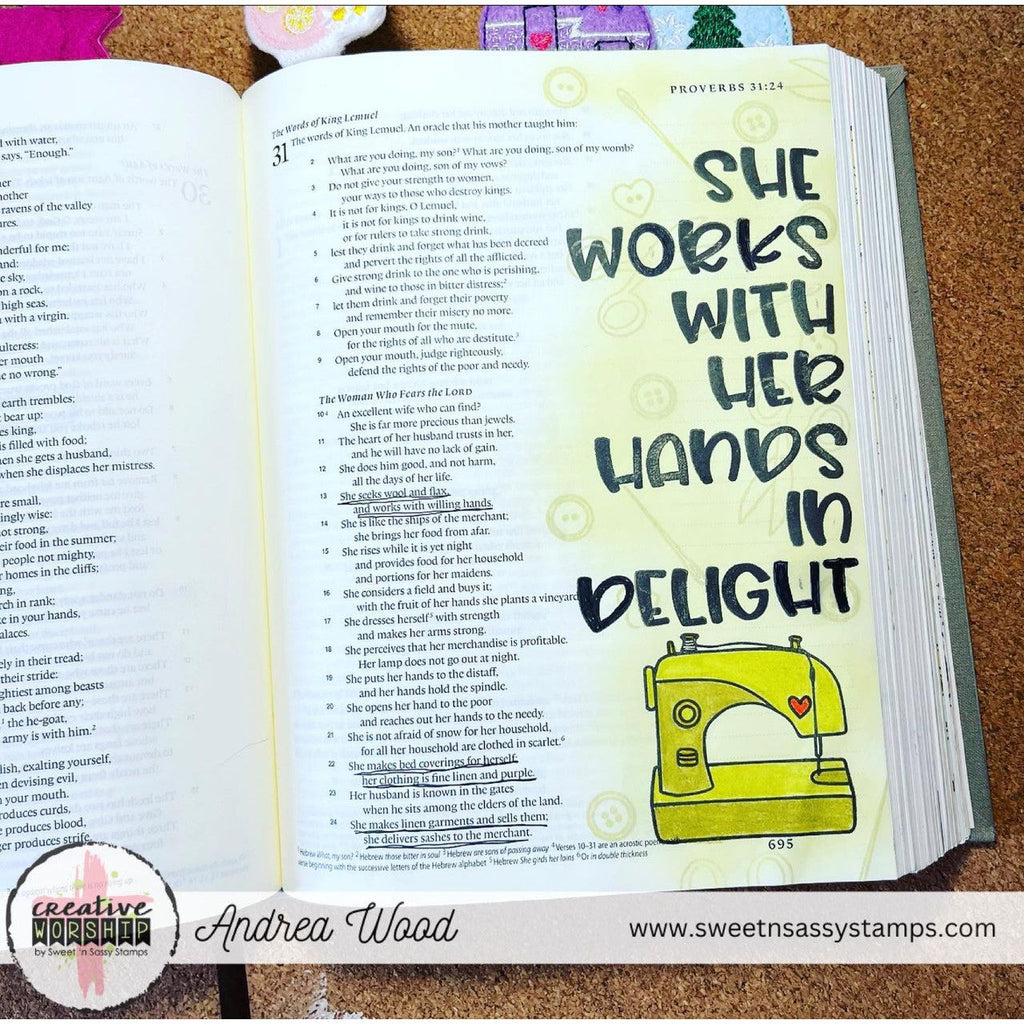 d with water,
says, “Enough.”
ther
nother
ravens of the valley
ures.
nderful for me;
and:
e sky,
on a rock,
high seas,
n with a virgin.
ulteress:
er mouth
e no wrong.”
earth trembles;
bear up:
es king,
is filled with food;
hen she gets a husband,
when she displaces her mistress.
re small,
ingly wise:
ot strong,
eir food in the summer;
people not mighty,
r homes in the cliffs;
ng,
rch in rank;
e in your hands,
alaces.
ely in their tread;
their stride:
ghtiest among beasts
back before any;
¹ the he-goat,
army is with him.²
lish, exalting yourself,
n devising evil,
n your mouth.
roduces curds,
e produces blood,
ger produces strife.
PROVERBS 31:24
The Words of King Lemuel
31 The words of King Lemuel. An oracle that his mother taught him:
2 What are you doing, my son?¹ What are you doing, son of my womb?
What are you doing, son of my vows?
3 Do not give your strength to women,
your ways to those who destroy kings.
4 It is not for kings, O Lemuel,
it is not for kings to drink wine,
or for rulers to take strong drink,
5 lest they drink and forget what has been decreed
and pervert the rights of all the afflicted.
6 Give strong drink to the one who is perishing,
and wine to those in bitter distress;²
7 let them drink and forget their poverty
and remember their misery no more.
8 Open your mouth for the mute,
for the rights of all who are destitute.³
9 Open your mouth, judge righteously,
defend the rights of the poor and needy.
The Woman Who Fears the LORD
10⁴ An excellent wife who can find?
She is far more precious than jewels.
11 The heart of her husband trusts in her,
and he will have no lack of gain.
12 She does him good, and not harm,
all the days of her life.
13 She seeks wool and flax,
and works with willing hands.
14 She is like the ships of the merchant;
she brings her food from afar.
15 She rises while it is yet night
and provides food for her household
and portions for her maidens.
16 She considers a field and buys it;
with the fruit of her hands she plants a vineyard.
17 She dresses herself⁵ with strength
and makes her arms strong.
18 She perceives that her merchandise is profitable.
Her lamp does not go out at night.
19 She puts her hands to the distaff,
and her hands hold the spindle.
20 She opens her hand to the poor
and reaches out her hands to the needy.
21 She is not afraid of snow for her household,
for all her household are clothed in scarlet.⁶
22 She makes bed coverings for herself;
her clothing is fine linen and purple.
23 Her husband is known in the gates
when he sits among the elders of the land.
24 She makes linen garments and sells them;
she delivers sashes to the merchant.
¹ Hebrew What, my son? ² Hebrew those bitter in soul ³ Hebrew are sons of passing away ⁴ Verses 10–31 are an acrostic poem
verse beginning with the successive letters of the Hebrew alphabet ⁵ Hebrew She girds her loins ⁶ Or in double thickness
SHE
WORKS
WITH
HER
HANDS
IN
DELIGHT
695
creative
WORSHIP
by Sweet 'n Sassy Stamps
Andrea Wood
www.sweetnsassystamps.com